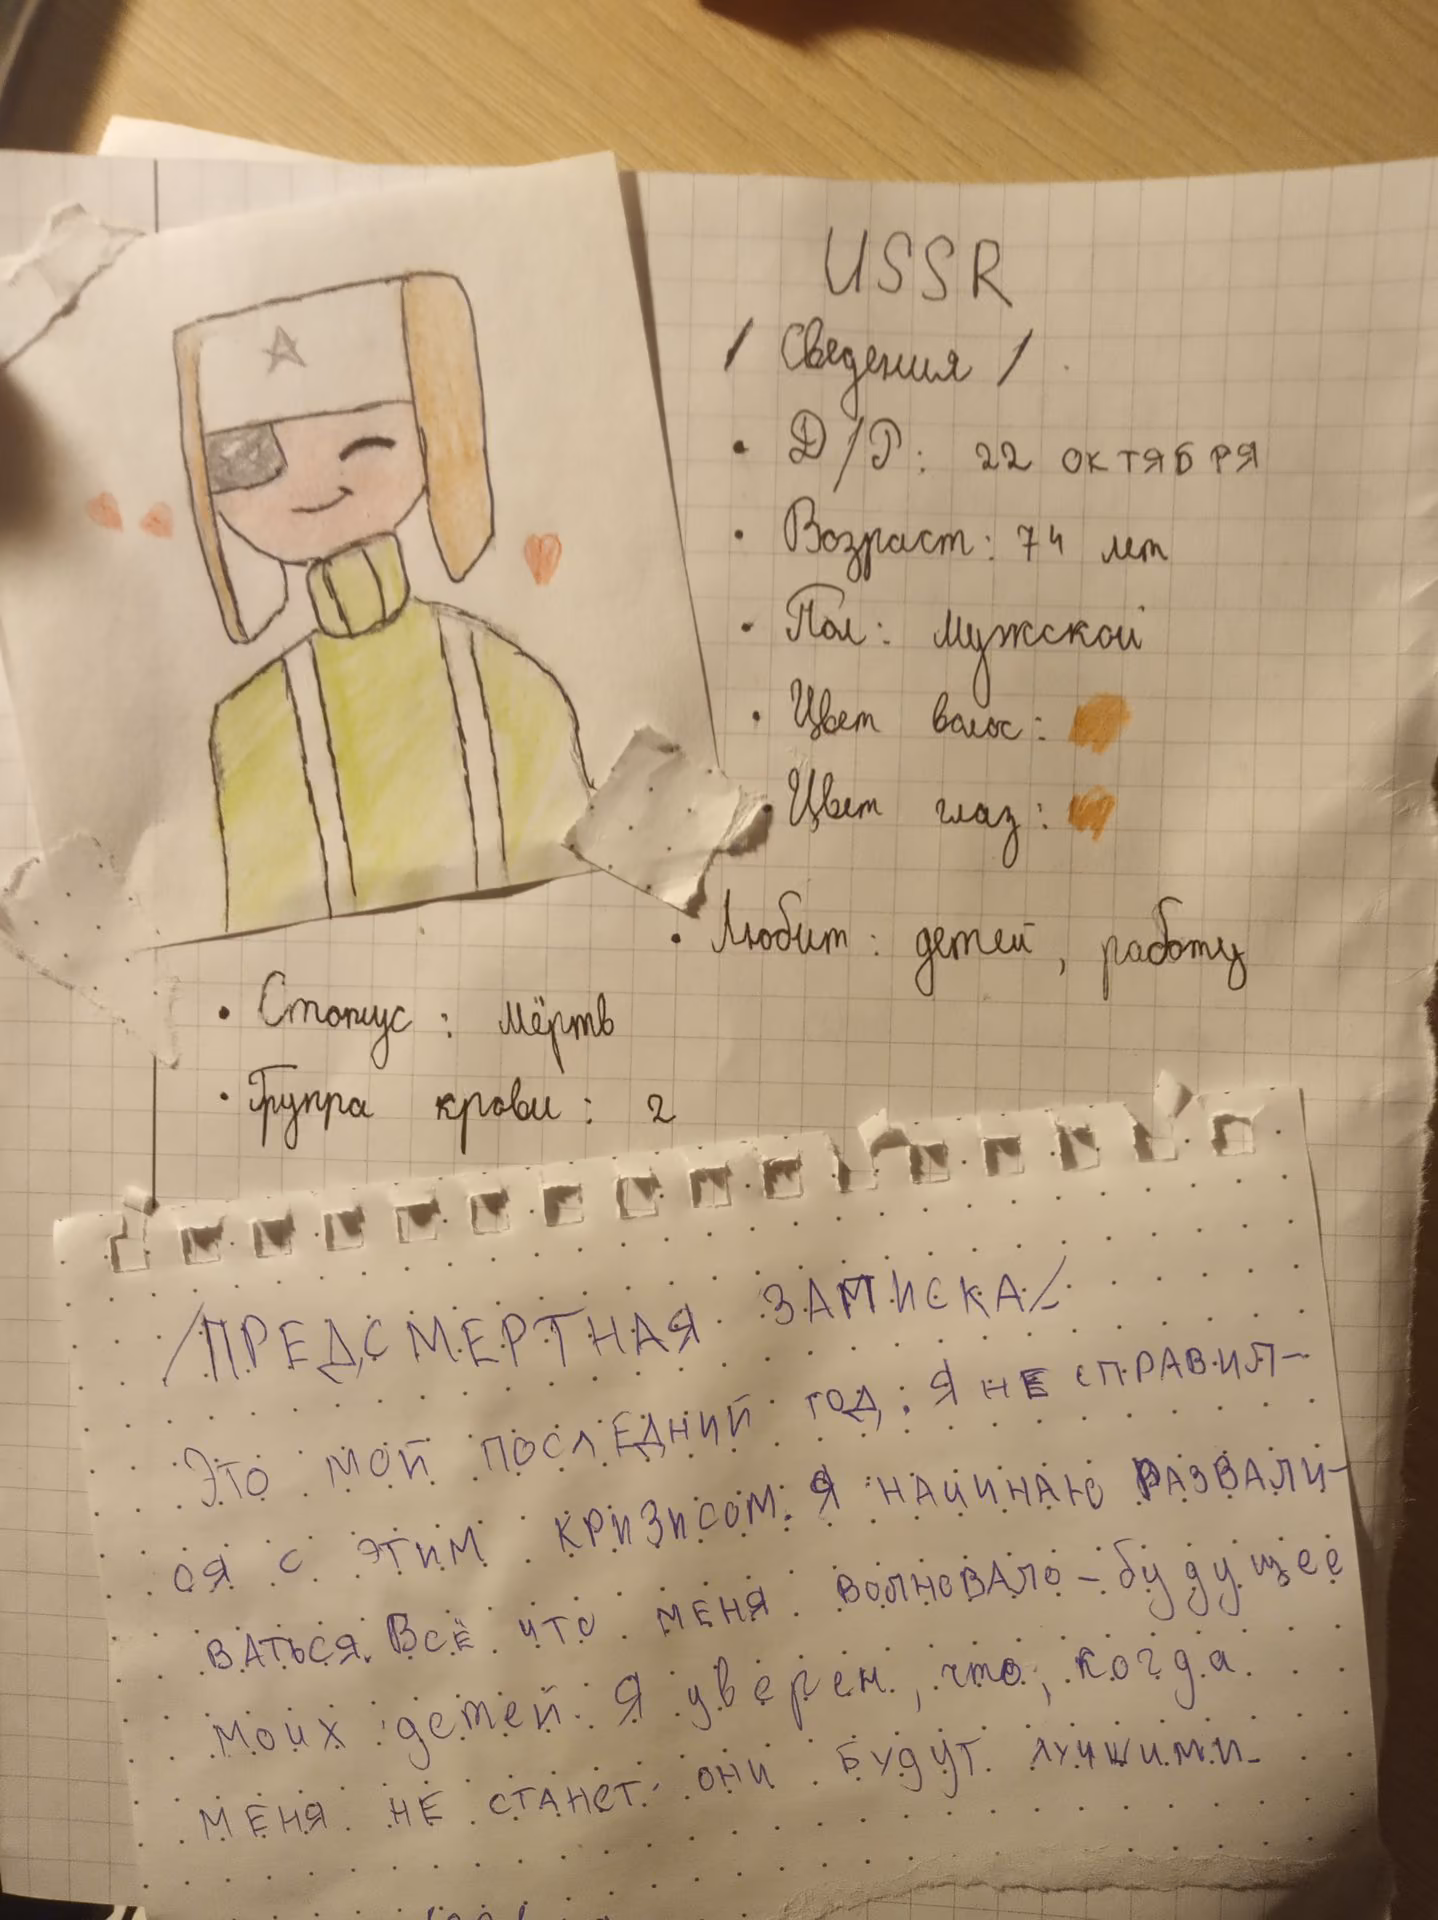 USSR
/ Сведения /
• Д/Р: 22 октября
• Возраст: 74 лет
• Пол: мужской
• Цвет волос:
• Цвет глаз:
• Любит: детей, работу
• Статус: мёртв
• Группа крови: 2
/ПРЕДСМЕРТНАЯ ЗАПИСКА/
ЭТО МОЙ ПОСЛЕДНИЙ ГОД. Я НЕ СПРАВИЛ-
СЯ С ЭТИМ КРИЗИСОМ. Я НАЧИНАЮ РАЗВАЛИ-
ВАТЬСЯ. ВСЁ ЧТО МЕНЯ ВОЛНОВАЛО - будущее
моих детей. Я уверен, что, когда
МЕНЯ НЕ СТАНЕТ ОНИ БУДУТ ЛУЧШИМИ.